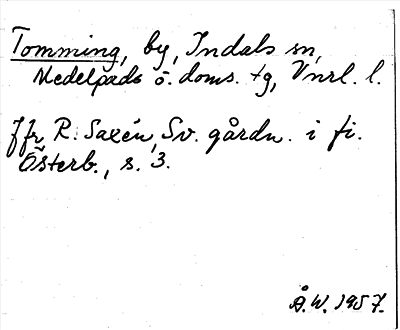 Tomming, by, Indals sn,
Medelpads ö. doms. tg, Vnrl. l.
Jfr R. Saxén, Sv. gårdn. i fi.
Österb., s. 3.
Å.W. 1957.